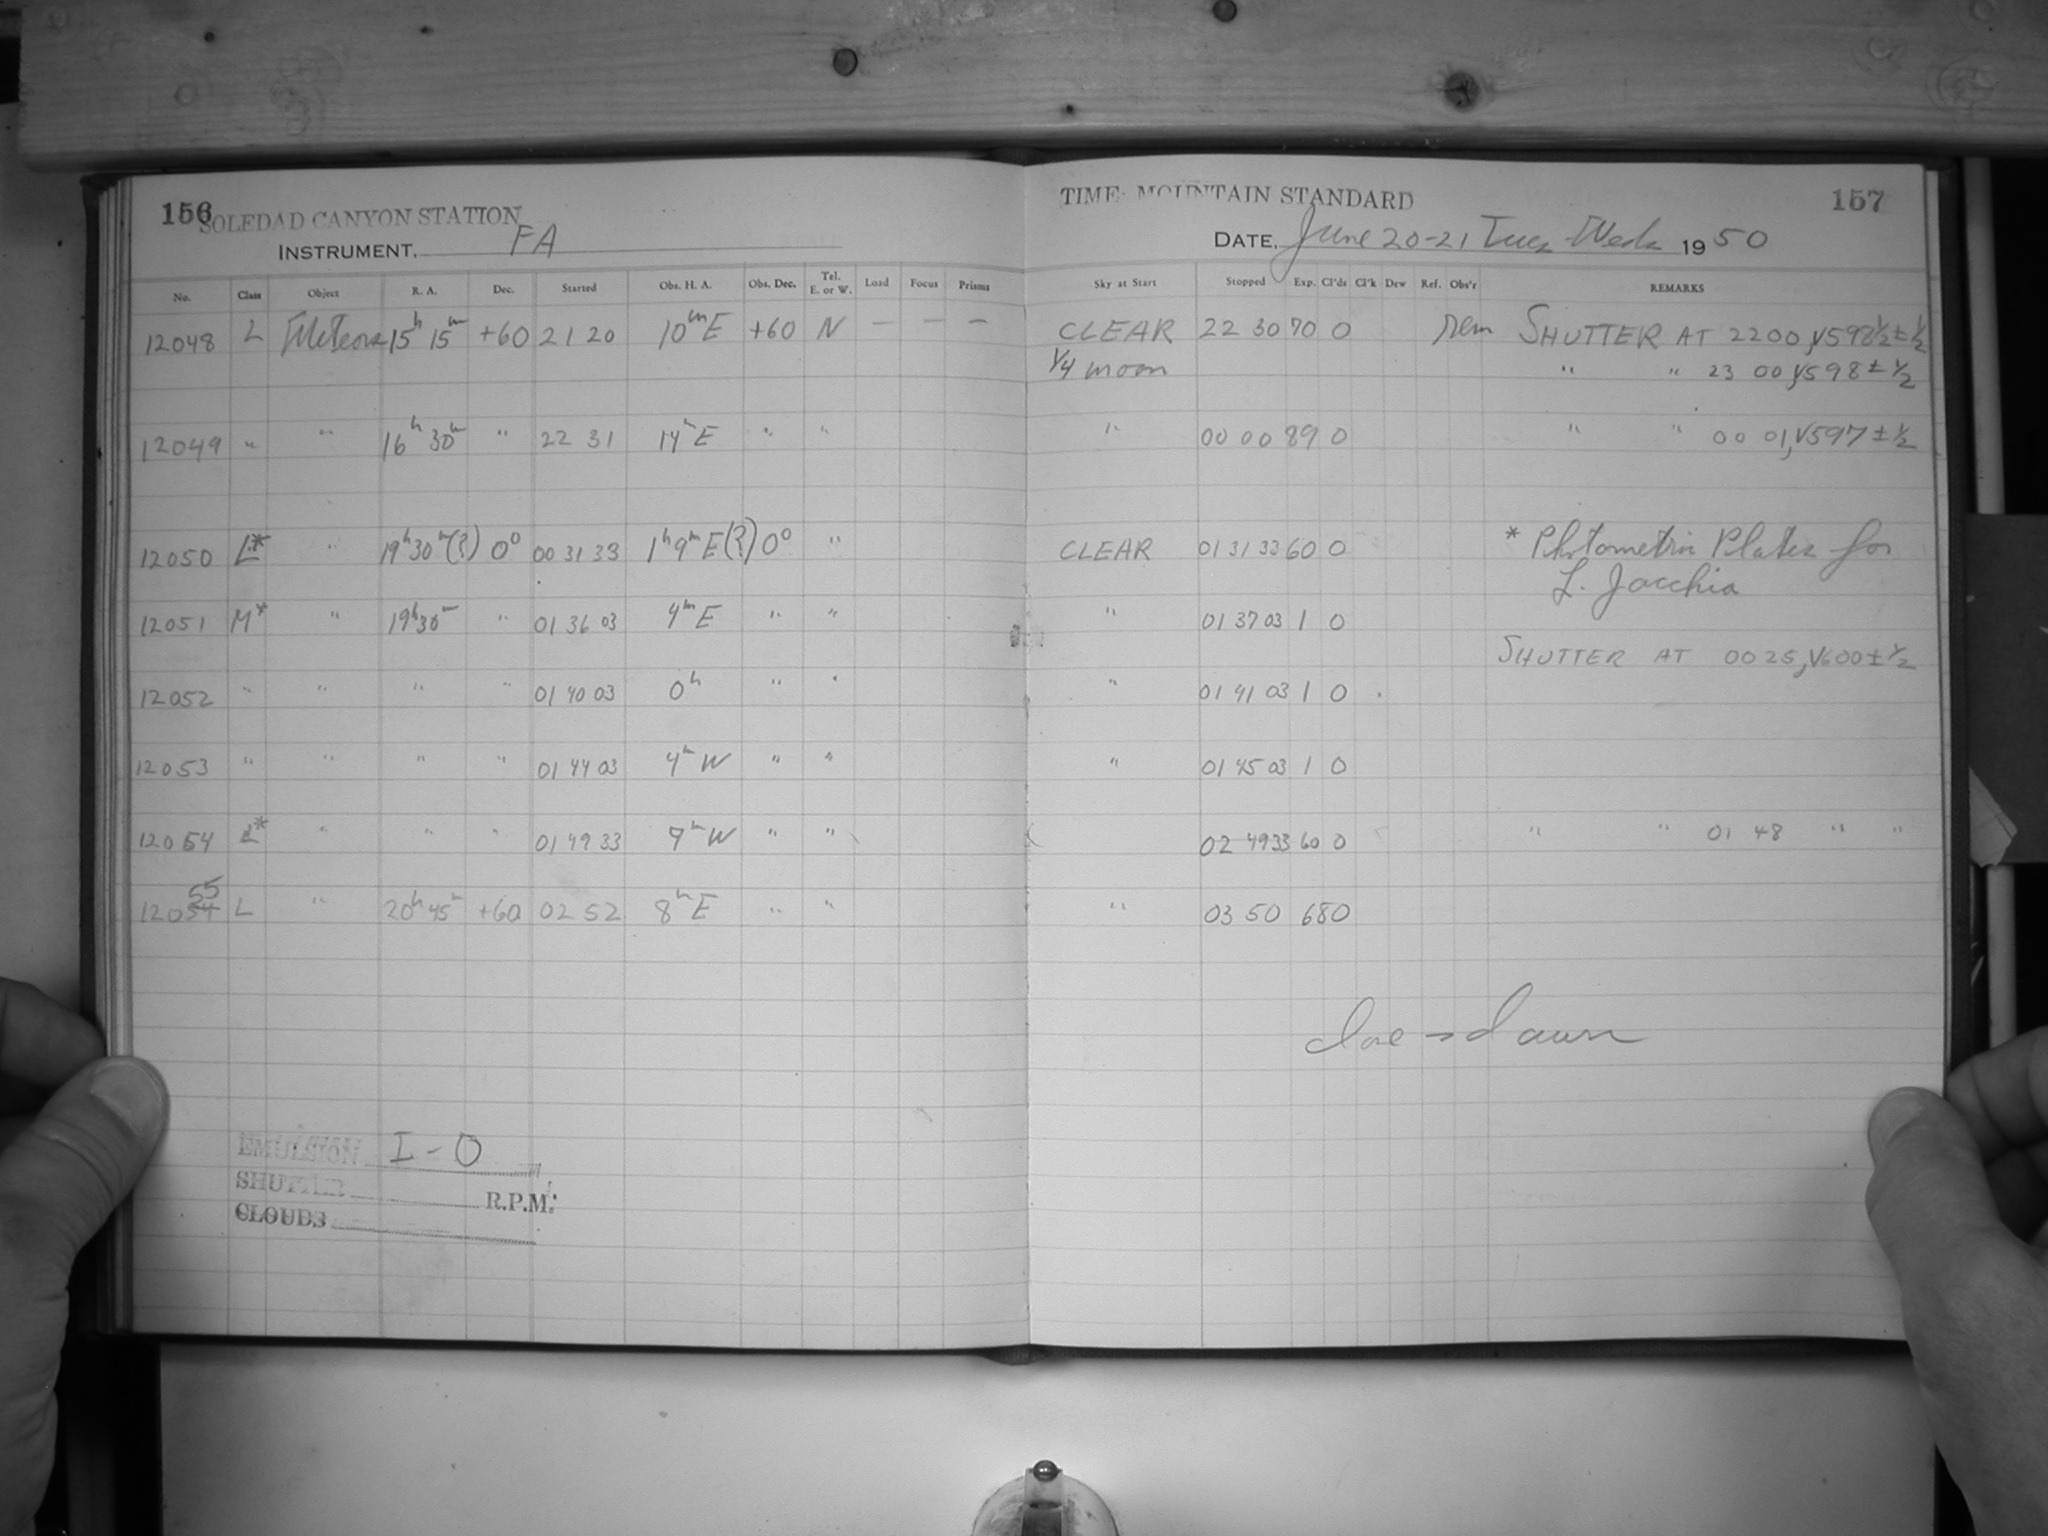 156 SOLEDAD CANYON STATION
INSTRUMENT, FA
No. Class Object R. A. Dec. Started Obs. H. A. Obs. Dec. Tel. E. or W. Load Focus Prisms
12048 L Meteors 15h 15m +60 21 20 10m E +60 N — — —
12049 " " 16h 30m " 22 31 14m E " "
12050 L* " 19h 30m (?) 0° 00 31 33 1h 9m E (?) 0° "
12051 M* " 19h 30m " 01 36 03 4m E " "
12052 " " " " 01 40 03 0h " "
12053 " " " " 01 44 03 4m W " "
12054 L* " " " 01 49 33 9m W " "
12054 55 L " 20h 45m +60 02 52 8m E " "
EMULSION I-O
SHUTTER R.P.M.
CLOUDS
TIME: MOUNTAIN STANDARD 157
DATE, June 20-21 Tues-Weds 1950
Sky at Start Stopped Exp. Cl'ds Cl'k Dew Ref. Obs'r REMARKS
CLEAR 22 30 70 0 SHUTTER AT 2200, √598½ ± ½
¼ moon " " 23 00, √598 ± ½
" 00 00 89 0 " " 00 01, √597 ± ½
CLEAR 01 31 33 60 0 * Photometric Plates for
L. Jacchia
" 01 37 03 1 0
SHUTTER AT 0025, √600 ± ½
" 01 41 03 1 0
" 01 45 03 1 0
02 49 33 60 0 " " 01 48 " "
" 03 50 68 0
dawn